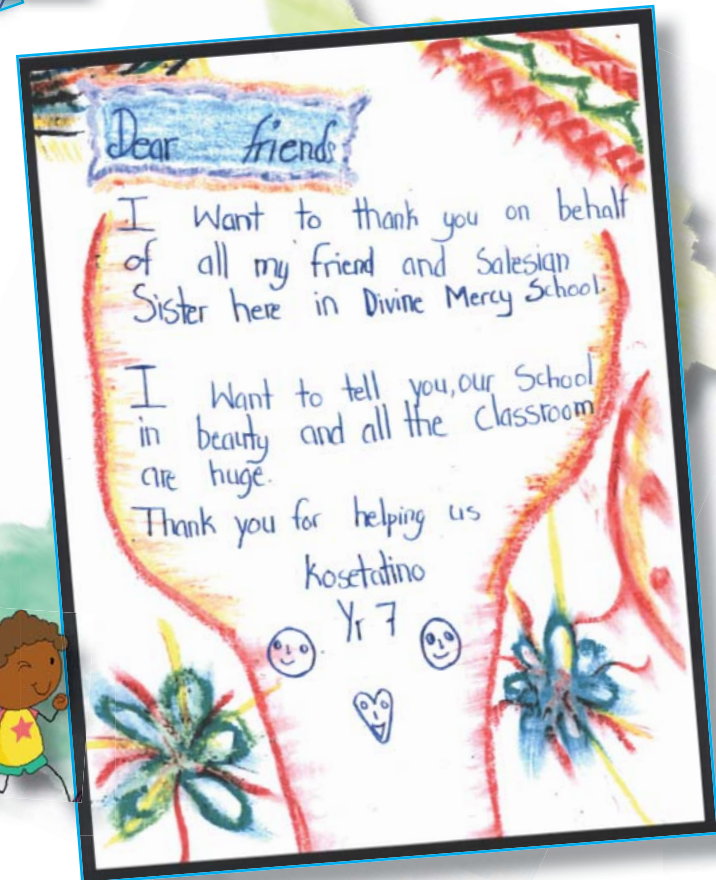 Dear friends
I Want to thank you on behalf
of all my friend and Salesian
Sister here in Divine Mercy School.
I Want to tell you, our School
in beauty and all the Classroom
are huge.
Thank you for helping us
Kosetatino
Yr 7